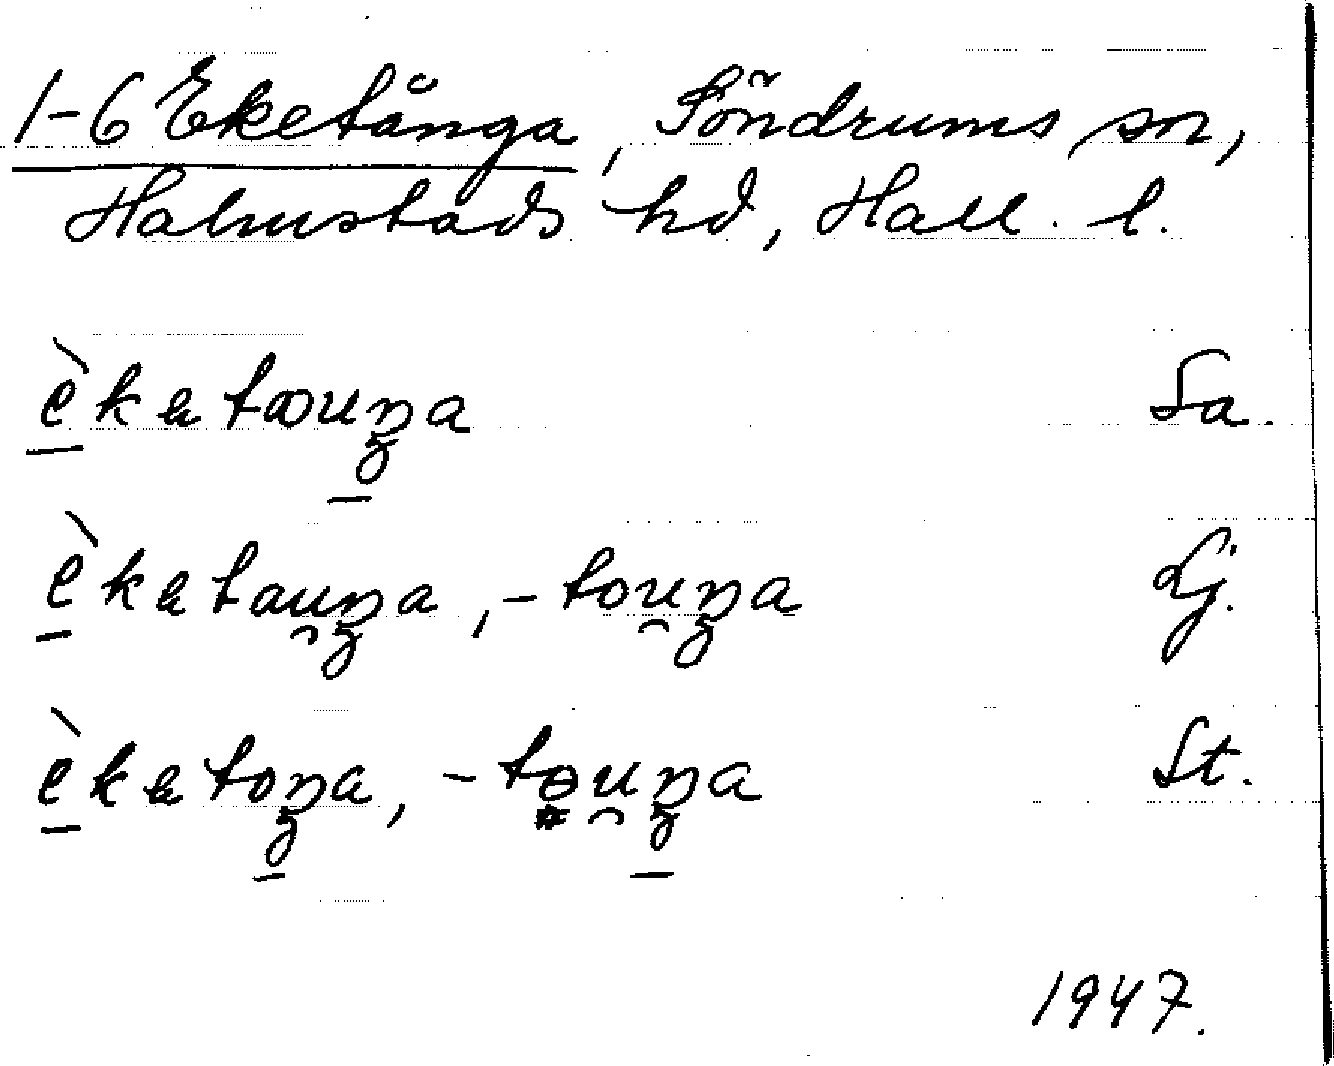 1-6 Eketånga, Söndrums sn,
Halmstads hd, Hall. l.
èkətɑuŋa Sa.
èkətau̯ŋa, -tou̯ŋa Lj.
èkətoŋa, -tɵu̯ŋa St.
1947.